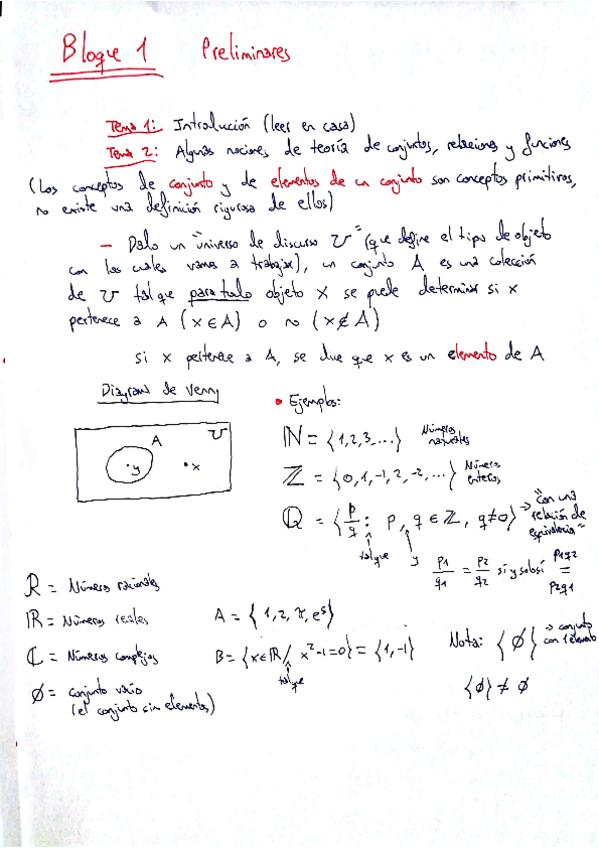 Bloque 1 Preliminares
Tema 1: Introducción (leer en casa)
Tema 2: Algunas nociones de teoría de conjuntos, relaciones y funciones
(Los conceptos de conjunto y de elementos de un conjunto son conceptos primitivos,
no existe una definición rigurosa de ellos)
— Dado un "universo de discurso U" (que define el tipo de objeto
con los cuales vamos a trabajar), un conjunto A es una colección
de U tal que para todo objeto x se puede determinar si x
pertenece a A (x ∈ A) o no (x ∉ A)
si x pertenece a A, se dice que x es un elemento de A
Diagrama de Venny
A U
·y ·x
• Ejemplos:
ℕ = {1,2,3,...} Números naturales
ℤ = {0,1,-1,2,-2,...} Números enteros
ℚ = {p/q : p, q ∈ ℤ, q≠0} → "Con una relación de equivalencia"
tal que y
p1/q1 = p2/q2 si y solo si p1q2 = p2q1
R = Números racionales
ℝ = Números reales
ℂ = Números complejos
∅ = conjunto vacío
(el conjunto sin elementos)
A = {1, 2, π, e⁵}
B = {x ∈ ℝ / x²-1=0} = {1,-1}
tal que
Nota: {∅} → conjunto con 1 elemento
{∅} ≠ ∅